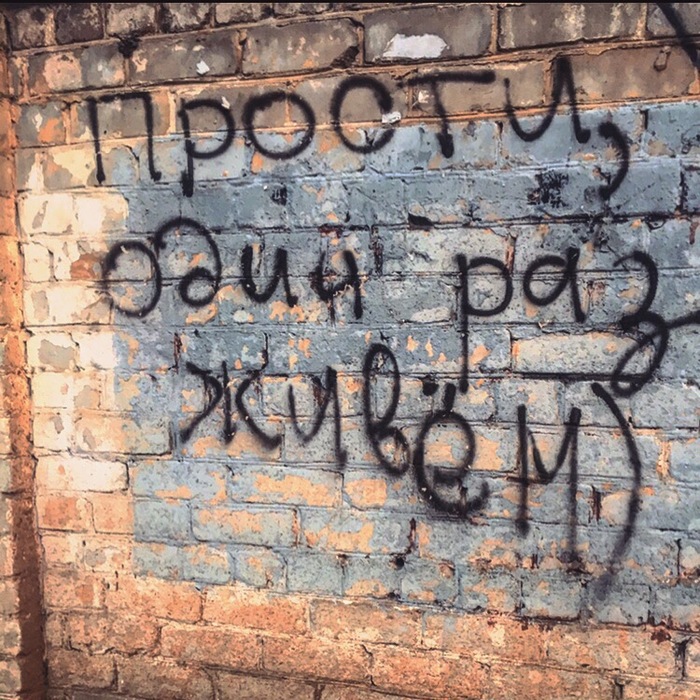 прости,
один раз
живём)